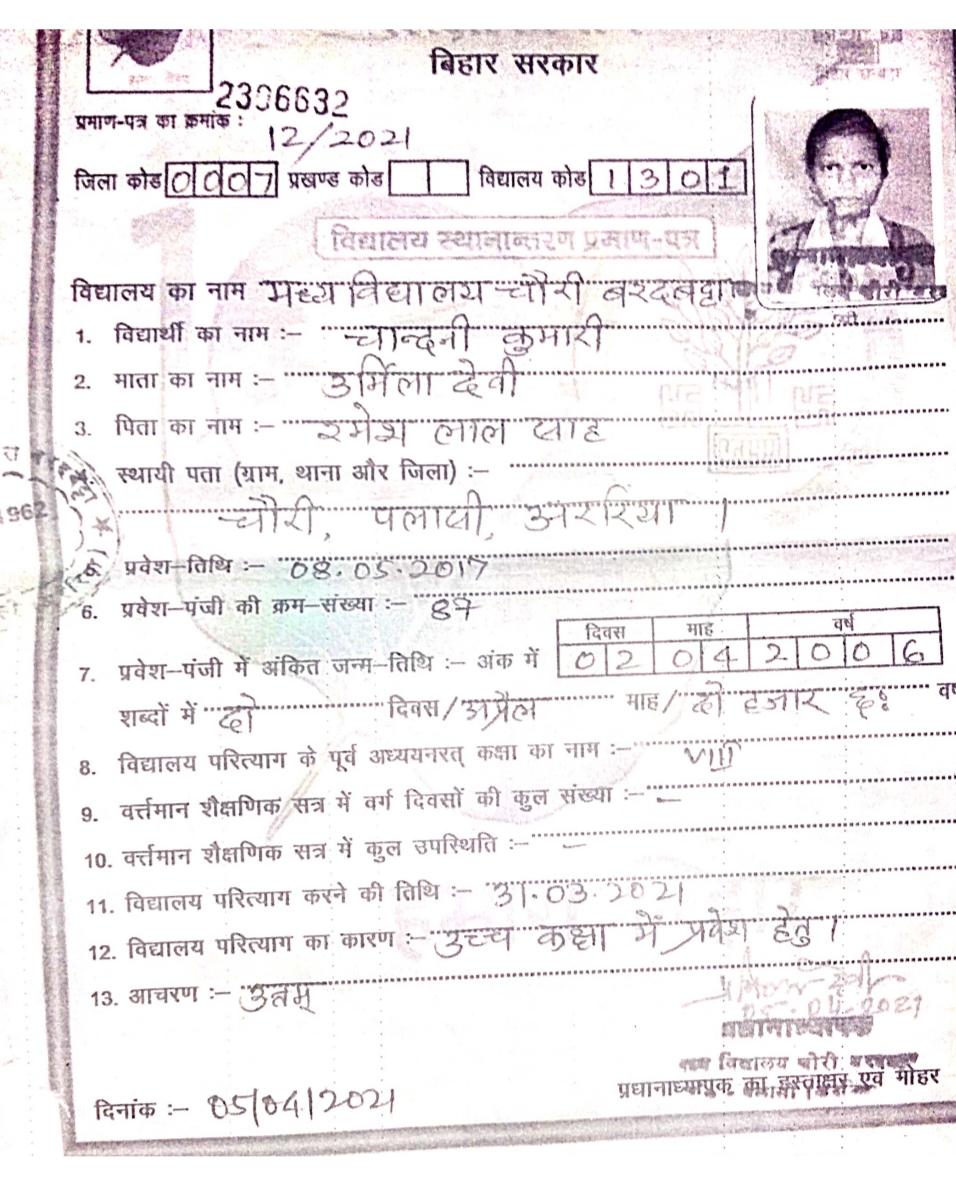 बिहार सरकार
2306632
प्रमाण-पत्र का क्रमांक :
12/2021
जिला कोड 0007 प्रखण्ड कोड विद्यालय कोड 1301
विद्यालय स्थानान्तरण प्रमाण-पत्र
विद्यालय का नाम मध्य विद्यालय चौरी बरदबट्टा
1. विद्यार्थी का नाम :– चान्दनी कुमारी
2. माता का नाम :– उर्मिला देवी
3. पिता का नाम :– रमेश लाल साह
स्थायी पता (ग्राम, थाना और जिला) :–
चौरी, पलासी, अररिया ।
1962
प्रवेश–तिथि :– 08.05.2017
6. प्रवेश–पंजी की क्रम–संख्या :– 87
दिवस माह वर्ष
7. प्रवेश–पंजी में अंकित जन्म–तिथि :– अंक में 02 04 2006
शब्दों में दो दिवस/अप्रैल माह/ दो हजार छः
8. विद्यालय परित्याग के पूर्व अध्ययनरत् कक्षा का नाम :– VIII
9. वर्त्तमान शैक्षणिक सत्र में वर्ग दिवसों की कुल संख्या :– –
10. वर्त्तमान शैक्षणिक सत्र में कुल उपस्थिति :– –
11. विद्यालय परित्याग करने की तिथि :– 31.03.2021
12. विद्यालय परित्याग का कारण :– उच्च कक्षा में प्रवेश हेतु ।
13. आचरण :– उत्तम्
05.04.2021
प्रधानाध्यापक
विद्यालय चौरी
प्रधानाध्यापक का हस्ताक्षर एवं मोहर
दिनांक :– 05/04/2021